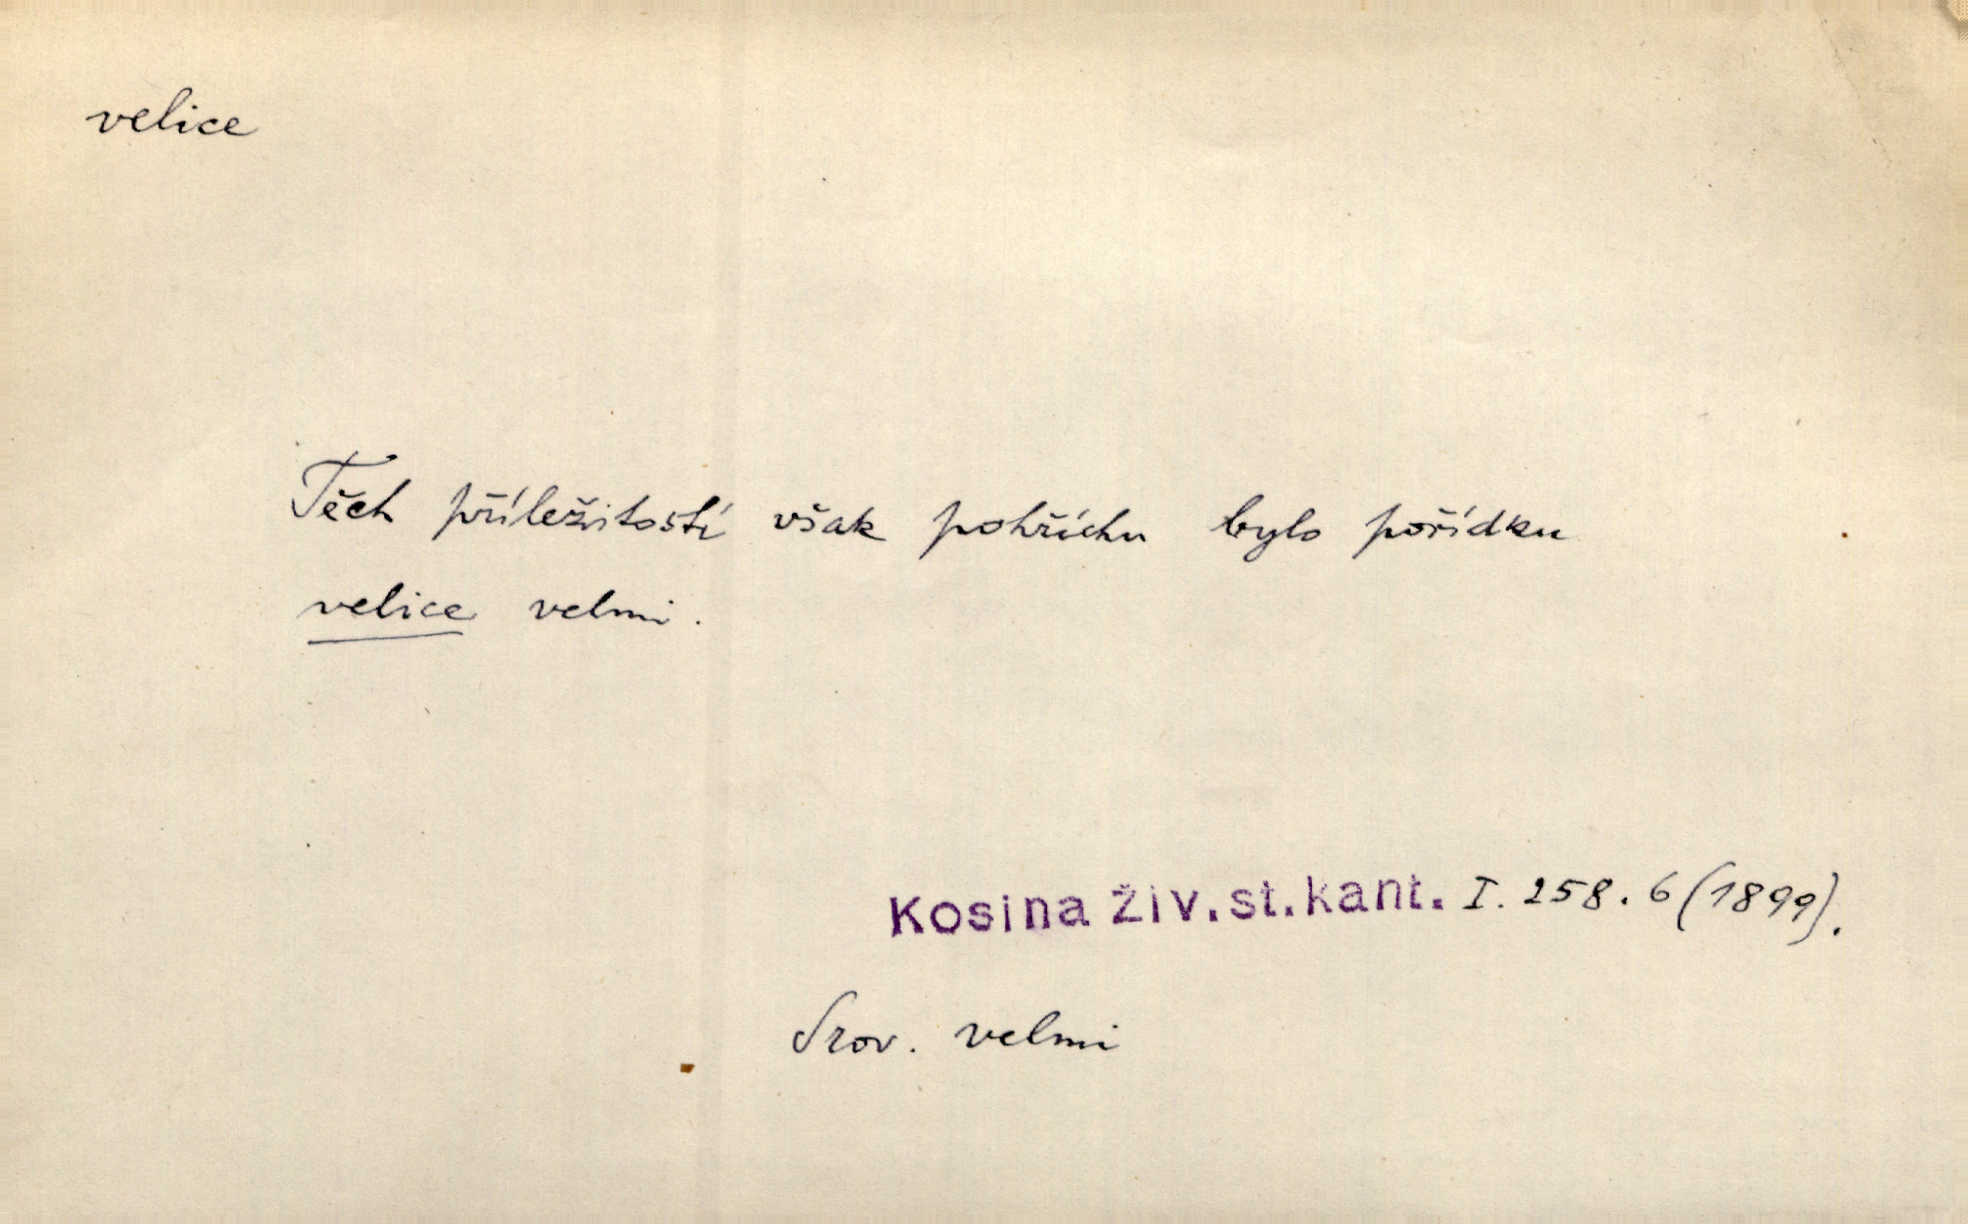 velice
Těch příležitostí však pohříchu bylo pořídku
velice velmi.
Kosina Živ. st. kant. I. 258. 6 (1899).
Srov. velmi